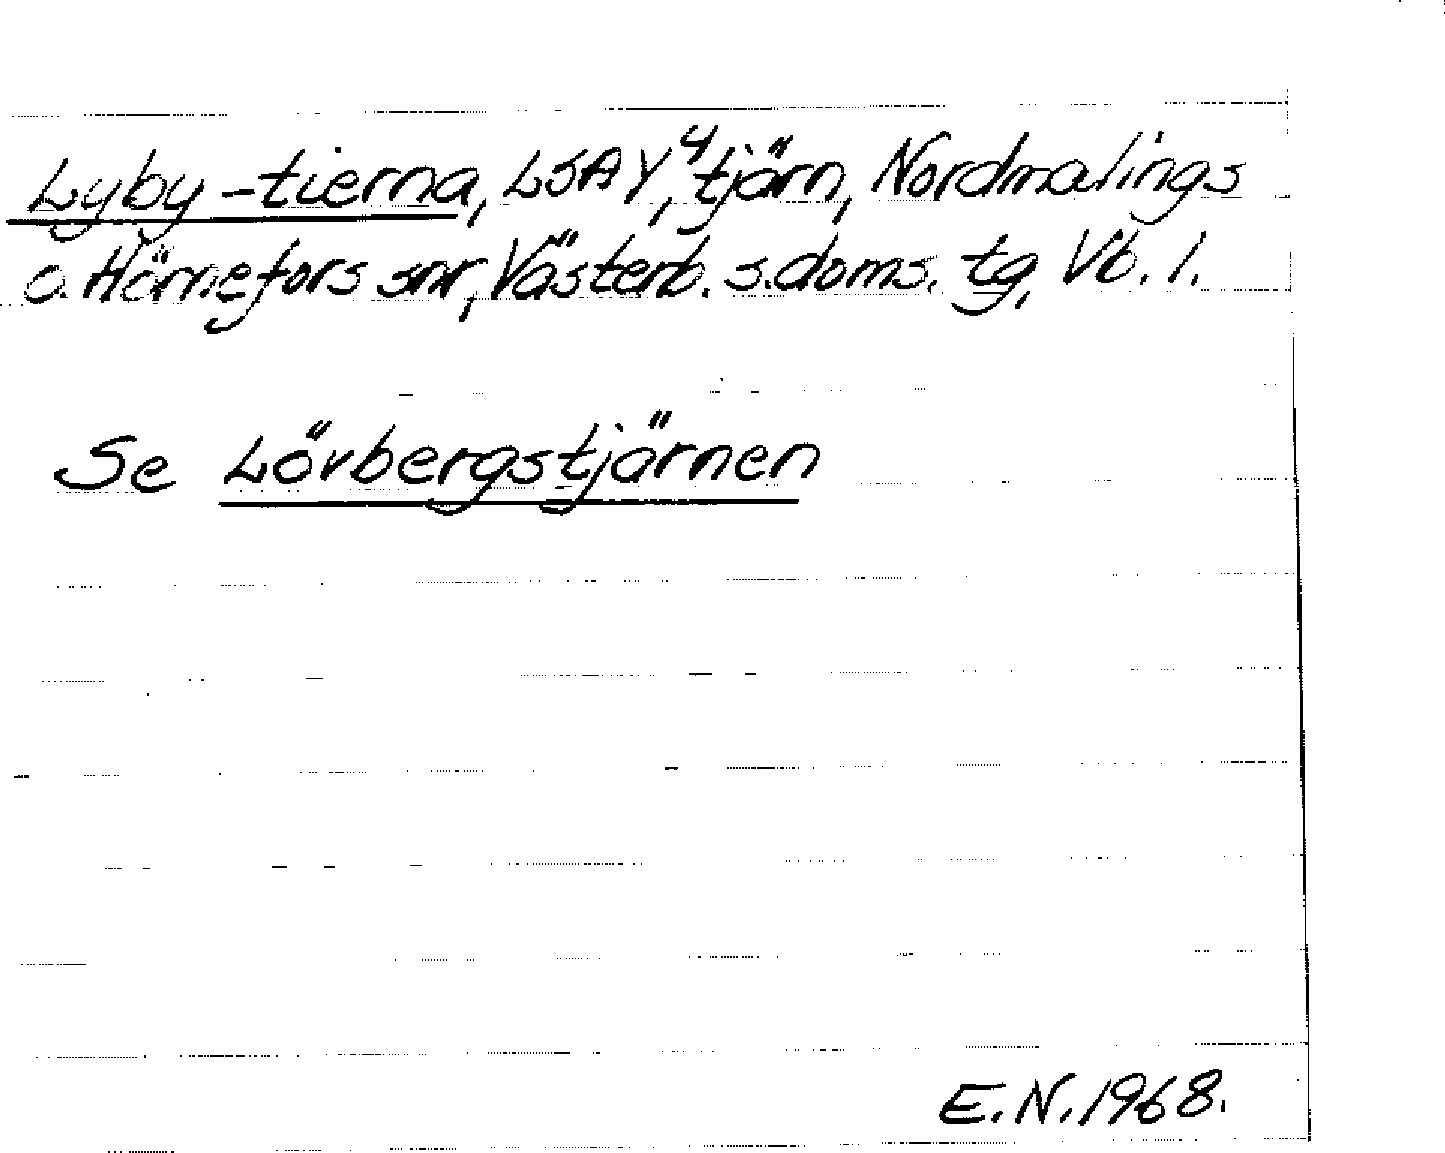 Lyby-tierna, LSA Y⁴, tjärn, Nordmalings
o. Hörnefors snr, Västerb. s. doms. tg, Vb. l.
Se Lövbergstjärnen
E.N. 1968.